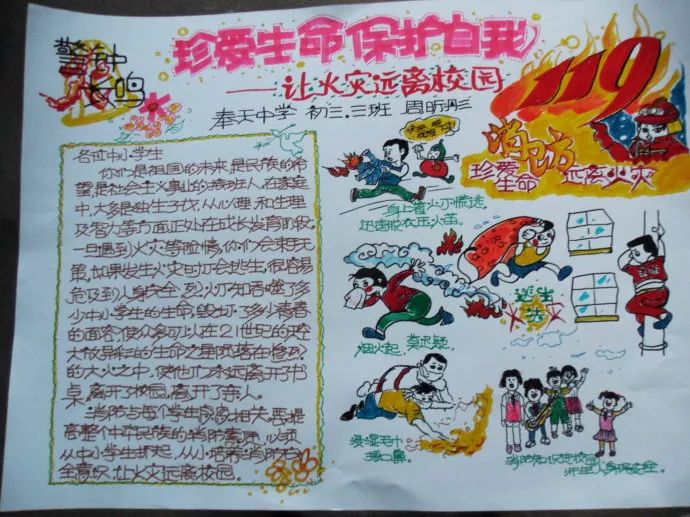 警钟
长鸣
珍爱生命 保护自我
——让火灾远离校园
奉天中学 初三.三班 周昕彤
119
消防
珍爱
生命
远离火灾
各位中小学生
你们是祖国的未来,是民族的希
望,是社会主义事业的接班人,在家庭
中,大多是独生子女,从心理和生理
及智力等方面正处在成长发育阶段,
一旦遇到火灾等险情,你们会束手无
策,如果发生火灾时不会逃生,很容易
危及到人身安全,烈火不知吞噬了多
少中小学生的生命,毁灭了多少青春
的面容,使众多可以在21世纪的天空
大放异彩的生命之星陨落在惨烈
的大火之中,使他们永远离开了书
桌,离开了校园,离开了亲人。
消防与每个学生息息相关,要提
高整个中华民族的消防素质,必须
从中小学生抓起,从小培养消防安
全意识,让火灾远离校园。
身上着火不慌逃
迅速脱衣压火苗。
烟火起,莫迟疑。
逃生
浸湿毛巾
捂口鼻。
消防知识进校园
师生人身保安全。